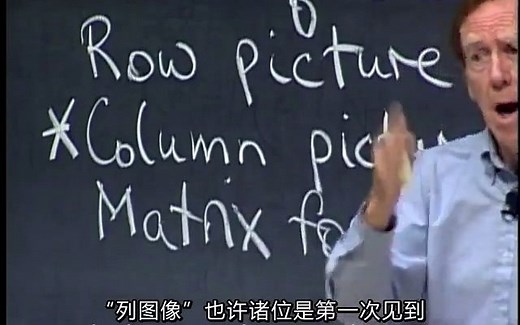 Row picture
*Column pictu
Matrix fo
“列图像”也许诸位是第一次见到